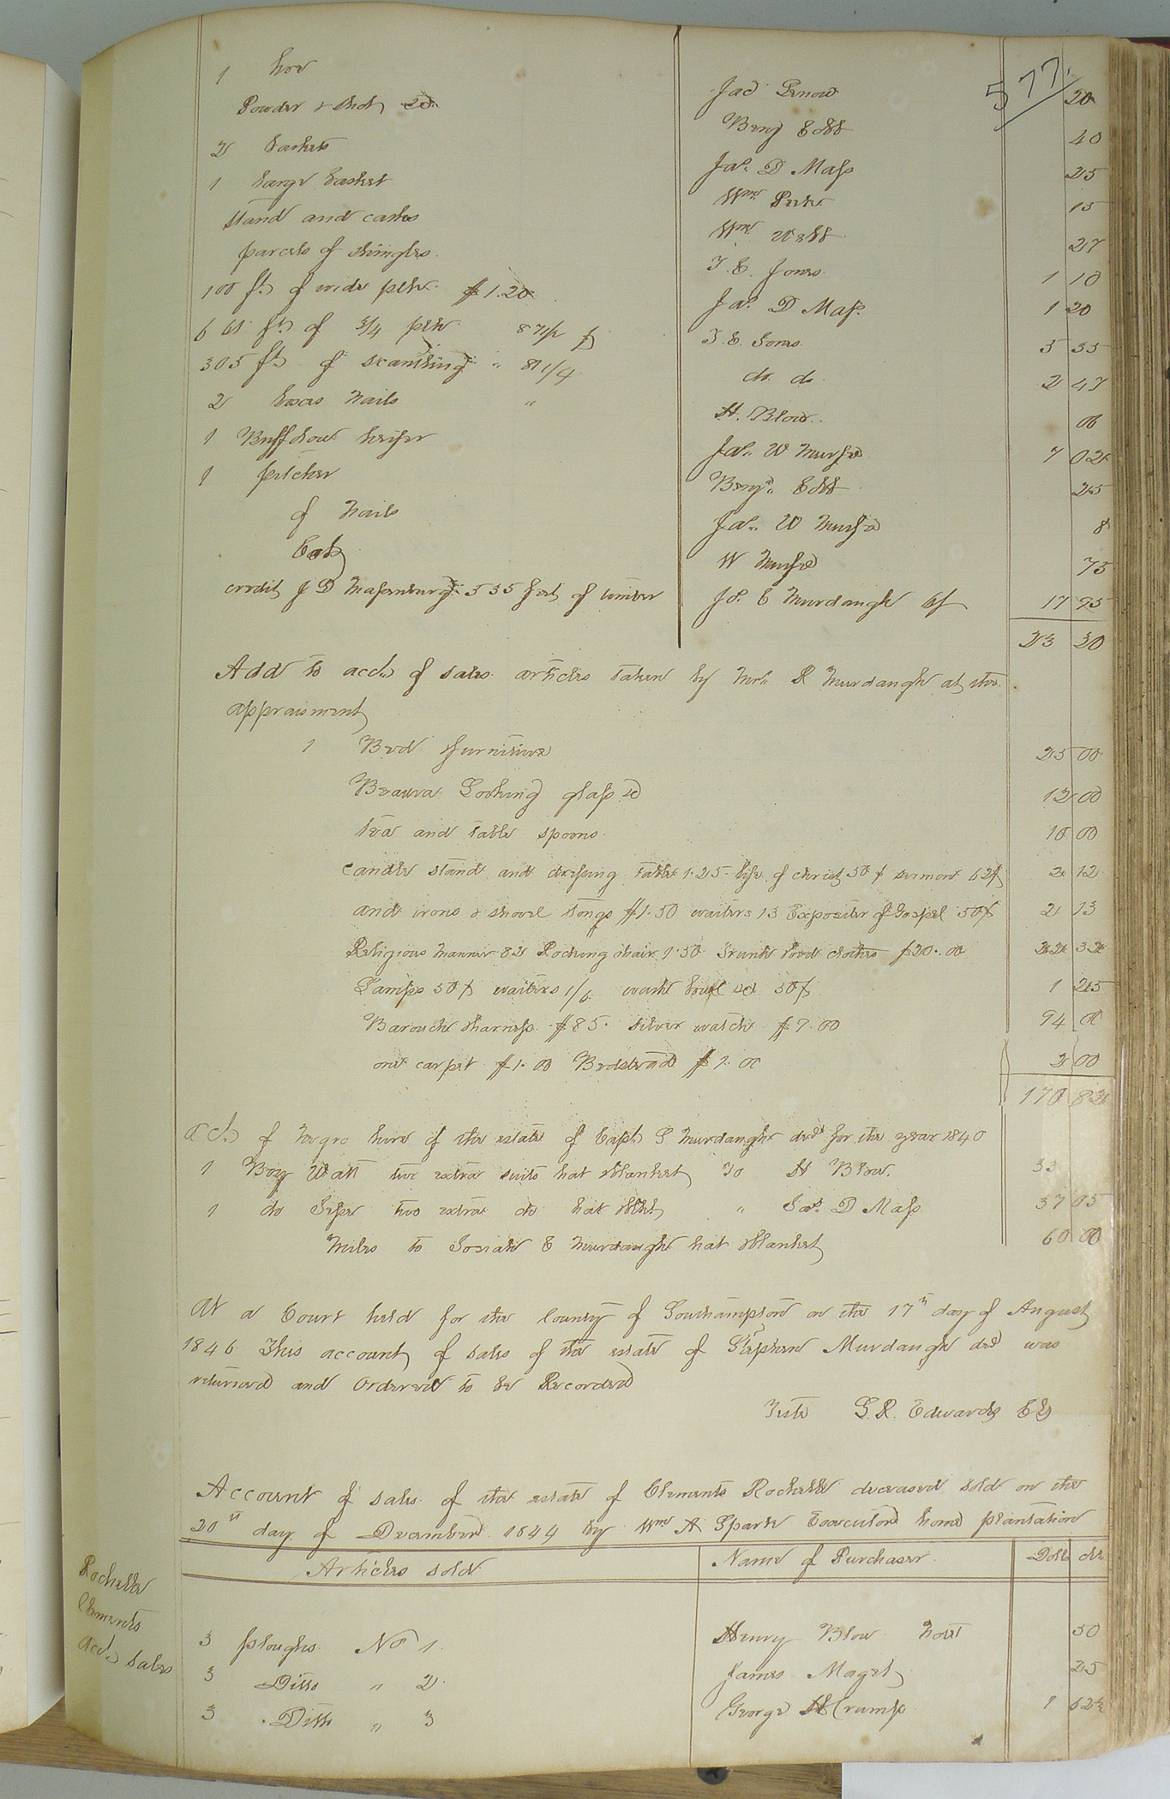 577.
1 hoe Jas Prnow 20
Powder & shot 20 Benj Edd 40
2 baskets Jas. D Mass 25
1 large basket Wm 15
Stand and casks Wm Webb 27
parcels of shingles T. E. Jones 1 10
100 ft. of wide plk. $1.20 Jas. D Mass. 1 20
6 61 ft. of 3/4 plk 87 1/2 ¢ T. E. Jones 5 35
305 ft. of scantling " 81 1/4 do do 2 47
2 boxes nails " H. Blow. 06
1 Buff heifer Jas. W Murfee 7 02
1 pitcher Benj. Edd 25
of nails Jas. W Murfee 8
W Murfee 75
credit J D Massenburg 535 feet of timber Jo. E Murdaugh by 17 95
23 30
Add to acct. of sales articles taken by Mrs. R Murdaugh at the
appraisment
1 Bed & furniture 25 00
Beaura Looking glass 12 00
tea and table spoons 10 00
candle stand and dressing table 1.25 life of christ 50 ¢ sermons 62 2 12
and irons & shovel tongs $1.50 waiters 13 Expositer of Gospel 50¢ 2 13
Religious manner 82 Rocking chair 1.50 Trunk clothes $20.00 22 32
Lamps 50 ¢ waiters 1/6 wash bowl 50¢ 1 25
Barouch & harness $85. silver watch $9.00 94 00
one carpet $1.00 Bedstead $2.00 3 00
170 82
Act. of Negro hire of the estate of Capt. S Murdaugh decd for the year 1840
1 Boy Watt two extra suits hat & blanket To H Blow. 33
1 do two extra do hat Blkt " Jas. D Mass 37 05
Miles to Josiah E Murdaugh hat & blanket 60 00
At a Court held for the County of Southampton on the 17th day of August
1846 This account of sales of the estate of Stephen Murdaugh decd was
returned and Ordered to be Recorded
Teste L. R. Edwards CC
Account of sales of the estate of Clements Rochelle deceased sold on the
20th day of December 1844 by Wm A Spark Executor home plantation
Articles sold Name of Purchaser Dolls cts
Rochelle
Clements
Act. sales
3 ploughs No 1. Henry Blow 50
3 Ditto " 2. James Maget 25
3 Ditto " 3 George H Crump 1 62½